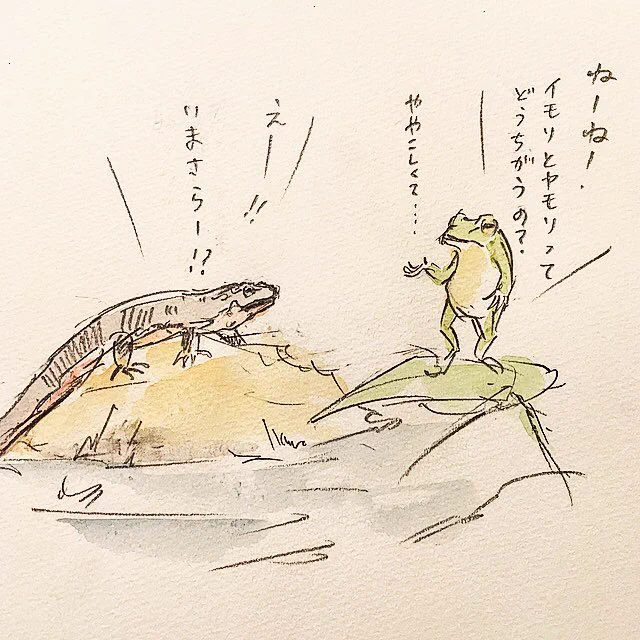 ねーねー．
イモリとヤモリって
どうちがうの？
ややこしくて…．
えー!!
いまさらー!?